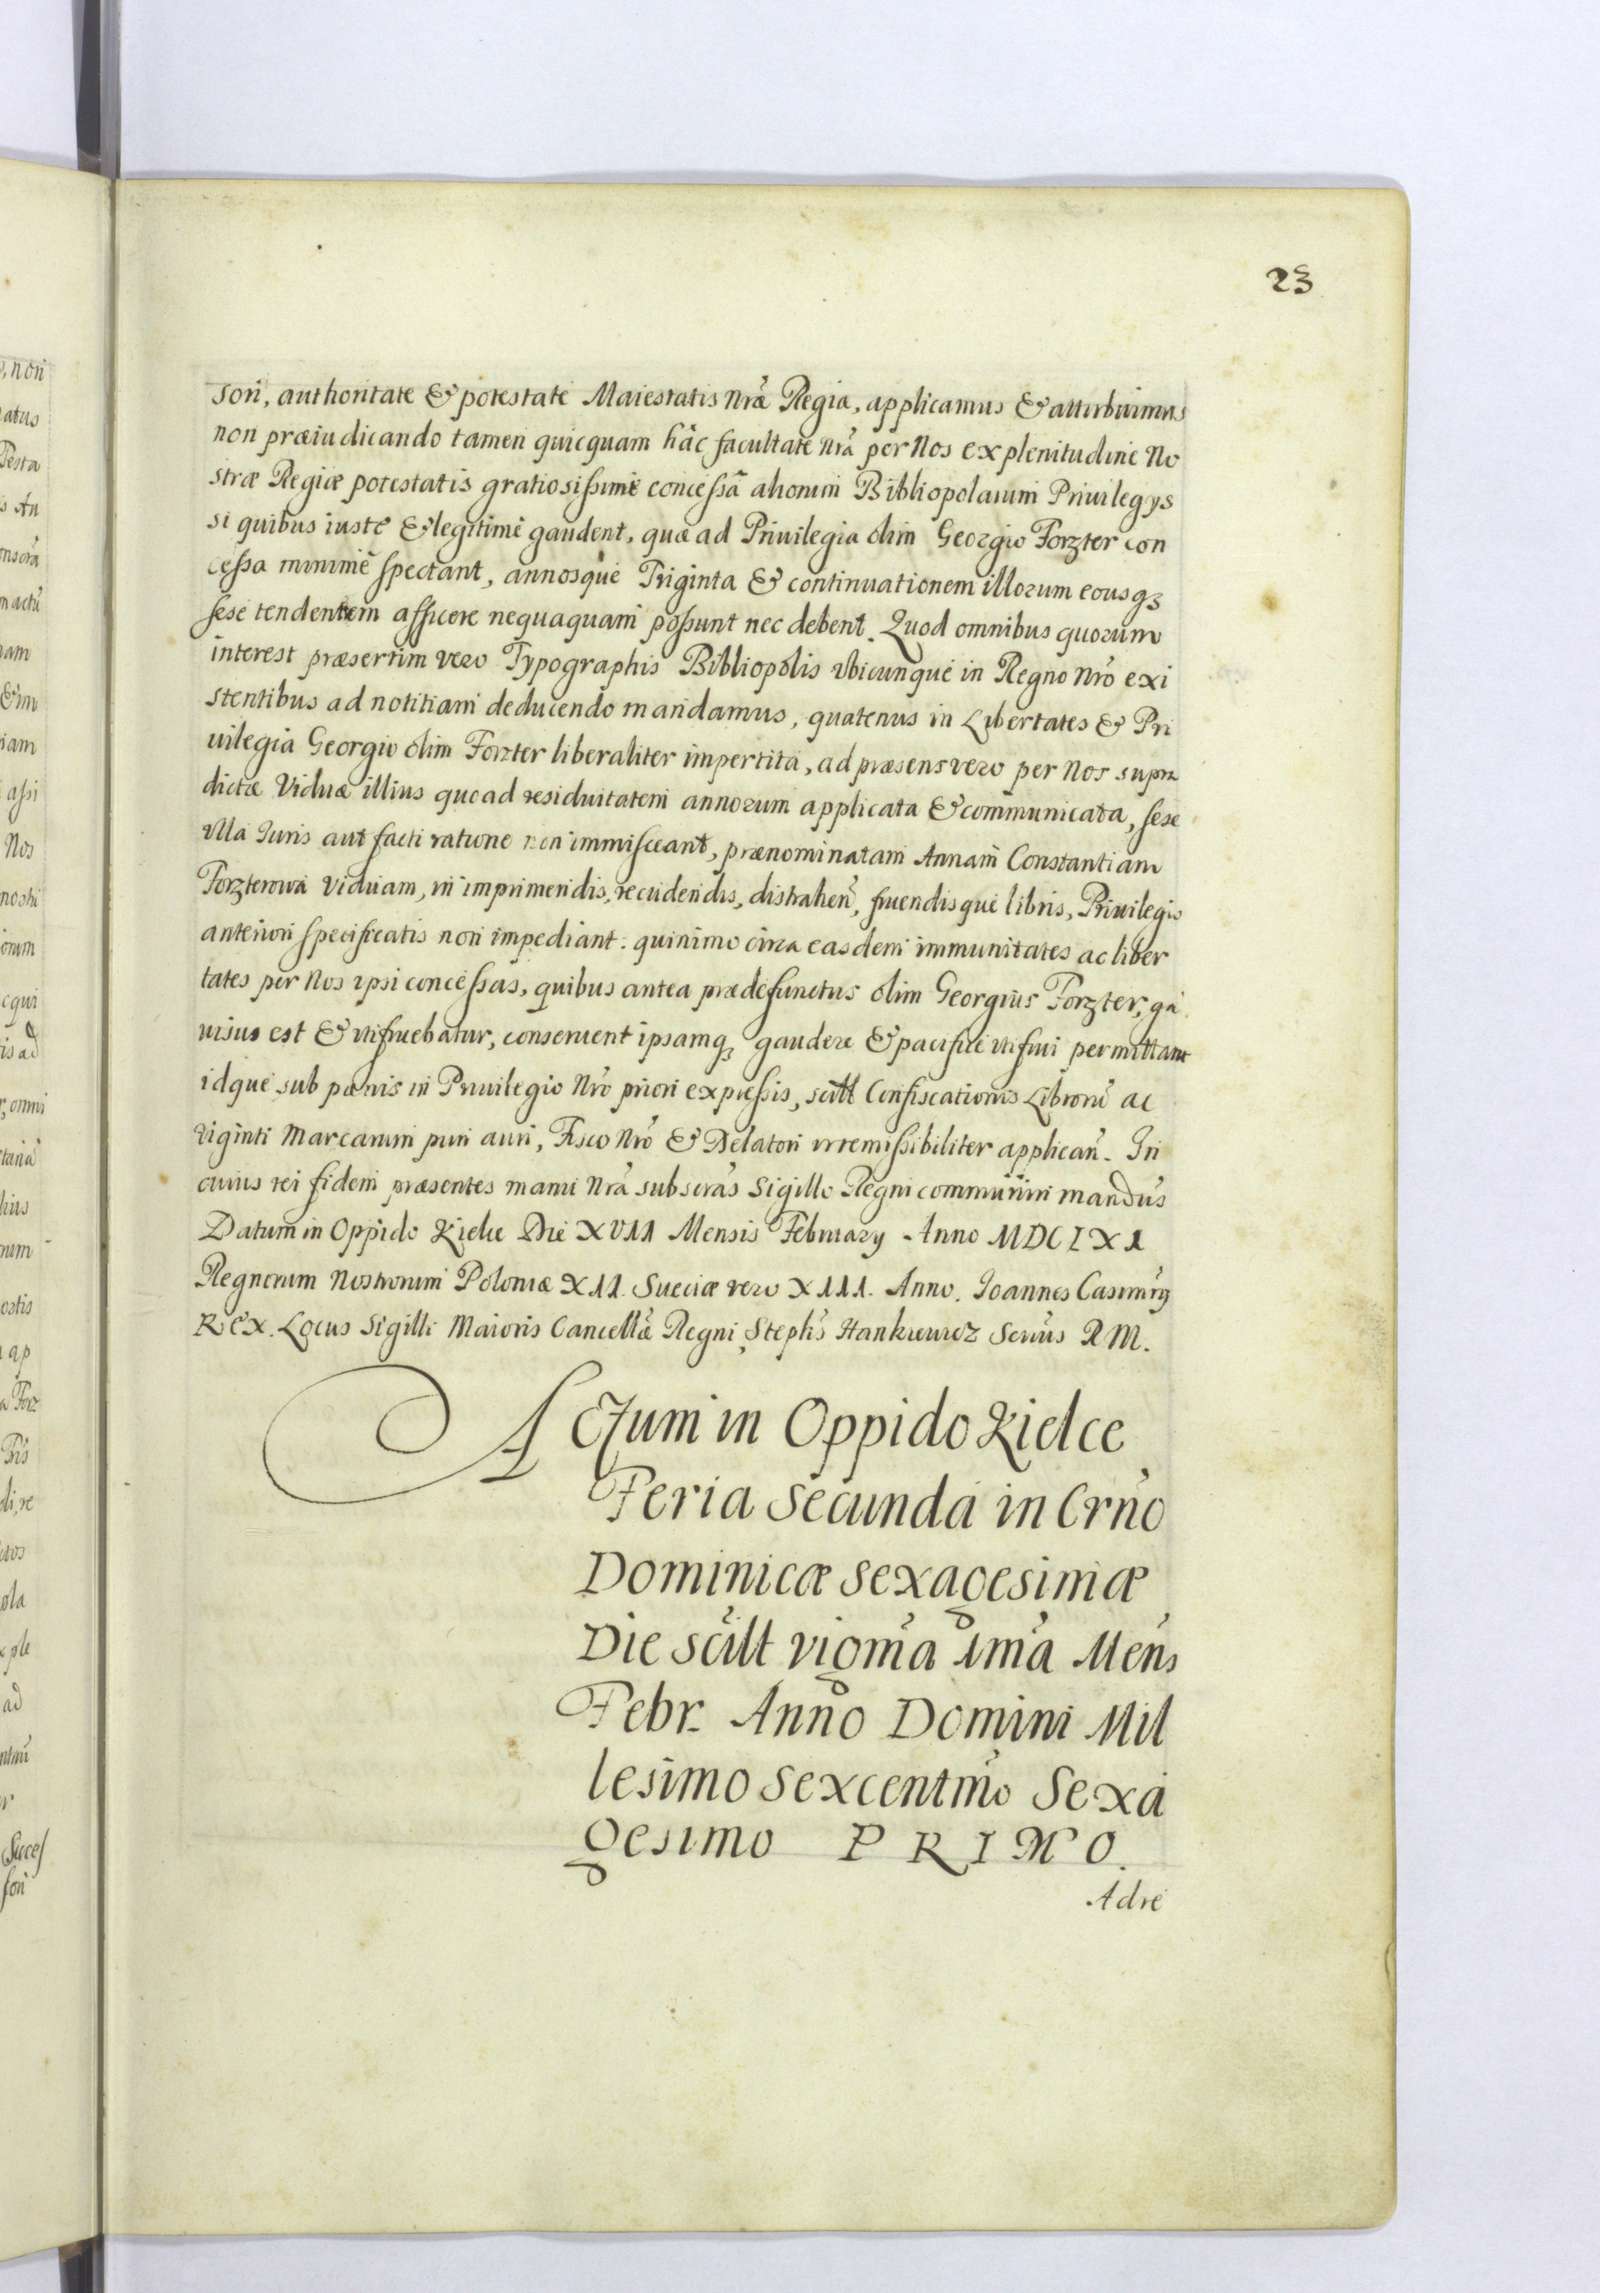 23
sori, authoritate & potestate Maiestatis Nrǽ Regia, applicamus & attribuimus
non præiudicando tamen quicquam hâc facultate Nrá per Nos ex plenitudine No
stræ Regiæ potestatis gratiosissimè concessâ aliorum Bibliopolarum Priuilegys
si quibus iustè & legitimè gaudent, quæ ad Priuilegia olim Georgio Forzter con
cessa minimè spectant, annosquè Triginta & continuationem illorum eousqȝ
sese tendentem afficere nequaquam possunt nec debent. Quod omnibus quorum
interest præsertim vero Typographis Bibliopolis vbicunque in Regno Nró exi
stentibus ad notitiam deducendo mandamus, quatenus in Libertates & Pri
uilegia Georgio olim Forzter liberaliter impertita, ad præsens vero per Nos supra
dictæ Viduæ illius quoad residuitatem annorum applicata & communicata, sese
vlla Iuris aut facti ratione non immisceant, prænominatam Annam Constantiam
Forzterowa Viduam, in imprimendis, recudendis, distrahen, fruendisque libris, Priuilegio
anteriori specificatis non impediant. quinimo circa easdem immunitates ac liber
tates per Nos ipsi concessas, quibus antea prædefunctus olim Georgius Forzter, ga
uisus est & vtifruebatur, conseruent ipsamqȝ gaudere & pacificè vtifrui permittant
idque sub pœnis in Priuilegio Nró priori expressis, scilt Confiscationis Librorú ac
viginti Marcarum puri auri, Fisco Nró & Delatori irremissibiliter applicań. In
cuius rei fidem præsentes manu Nrá subscras Sigillo Regni communiri mandús
Datum in Oppido Kielce Die XVII Mensis February Anno MDCLXI
Regnorum Nostrorum Poloniæ XII. Sueciæ vero XIII. Anno. Ioannes Casimirÿ
Rex. Locus Sigilli Maioris Cancellǽ Regni, Stephs Hankiewicz Secrius R M.
Actum in Oppido Kielce
Feria Secunda in Crńo
Dominicæ Sexagesimæ
Die scilt vigḿa 1ḿa Meńs
Febr. Anno Domini Mil
lesimo Sexcentḿo Sexa
gesimo PRIMO.
Adre